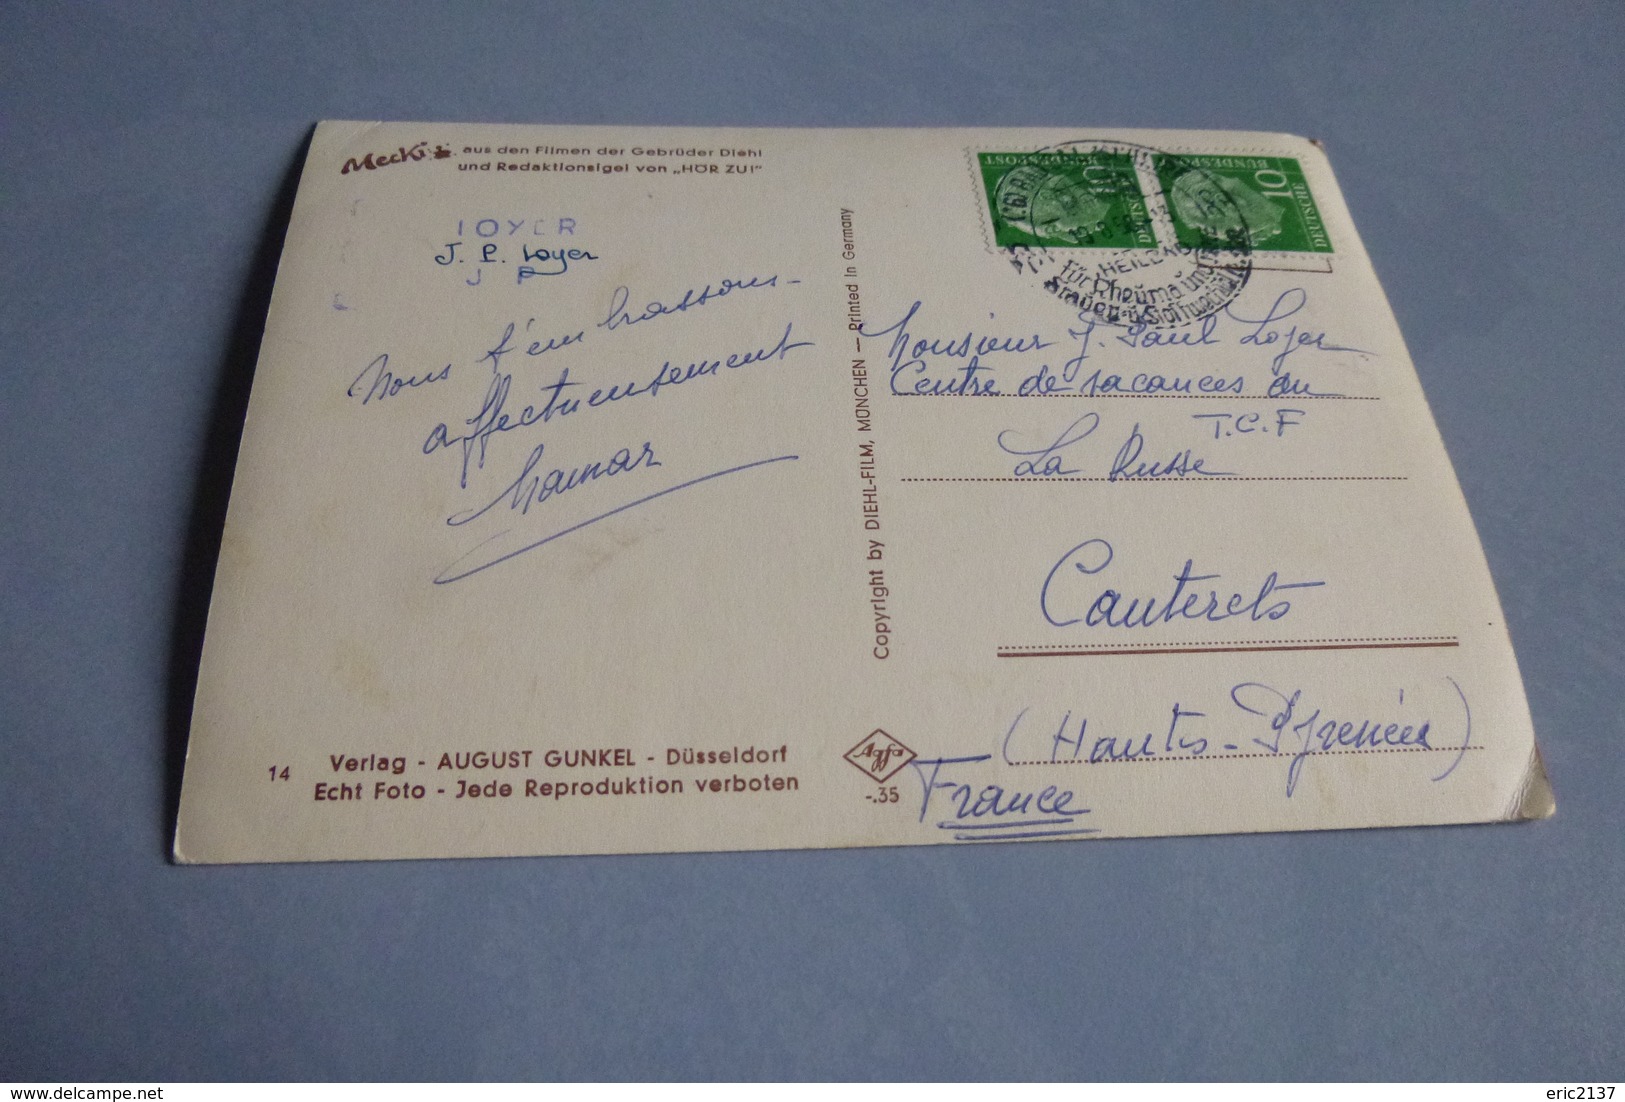 Mecki aus den Filmen der Gebrüder Diehl
und Redaktionsigel von „HÖR ZU!"
LOYER
J. P. Loyer
J P
Nous t'embrassons
affectueusement
Mamar
Verlag - AUGUST GUNKEL - Düsseldorf
14 Echt Foto - Jede Reproduktion verboten
Copyright by DIEHL-FILM, MÜNCHEN — Printed in Germany
Agfa
-.35
DEUTSCHE BUNDESPOST 10
DEUTSCHE BUNDESPOST 10
für Rheuma und
Frauen- u. Stoffwechsel
Monsieur J. Paul Loyer
Centre de vacances du
T.C.F
La Russe
Cauterets
(Hautes-Pyrénées)
France
delcampe.net
eric2137